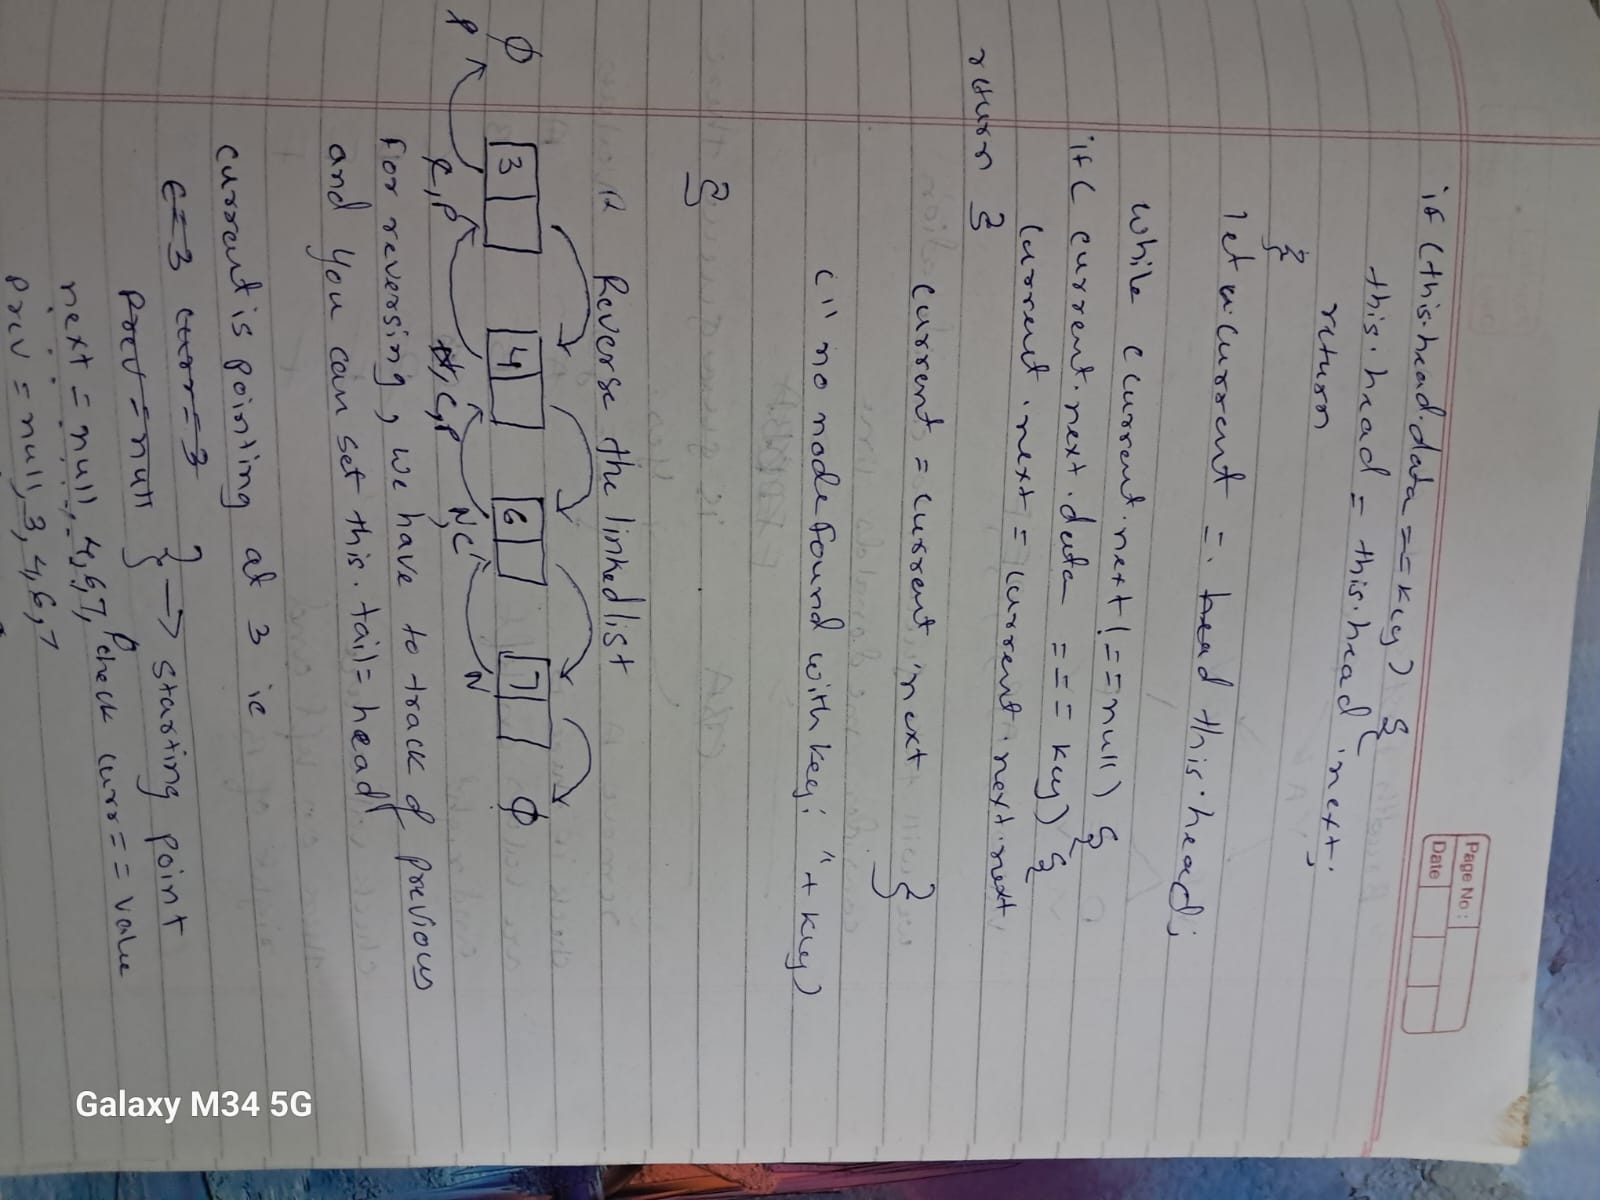 Page No :
Date
if (this.head.data === key) {
this.head = this.head.next;
return
}
let current = head this.head;
while (current.next !== null) {
if ( current.next.data === key) {
current.next = current.next.next
return }
current = current.next }
(" no node found with key: " + key)
}
Reverse the linkedlist
ϕ 3 4 6 7 ϕ
P C, P N, C, P N, C N
For reversing, we have to track of previous
and you can set this.tail = head
current is pointing at 3 ie
c=3 curr=3
prev = null } → starting point
next = null, 4, 6, 7, check curr == value
prev = null, 3, 4, 6, 7
Galaxy M34 5G